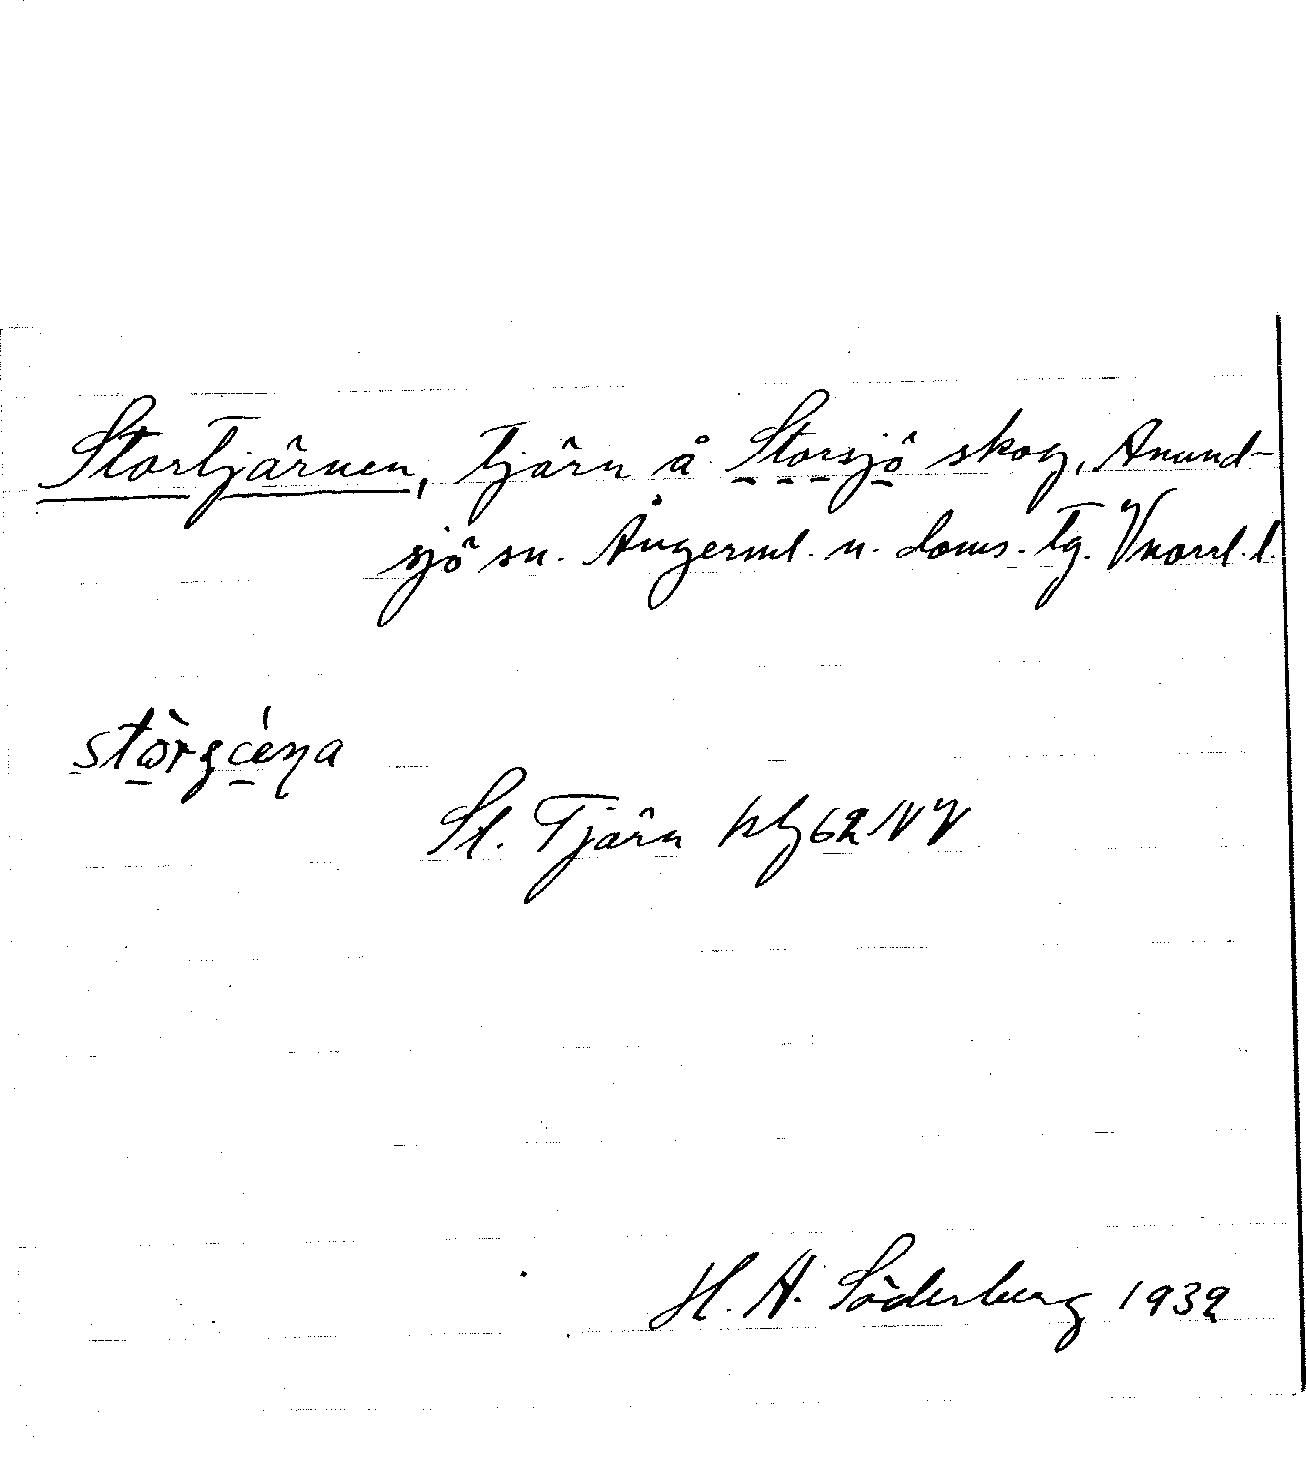 Stortjärnen, tjärn å Storsjö skog, Anund-
sjö sn. Ångerml. n. doms. tg. Vnorrl. l.
St. Tjärn kbg 62 NV
H. A. Söderberg 1932